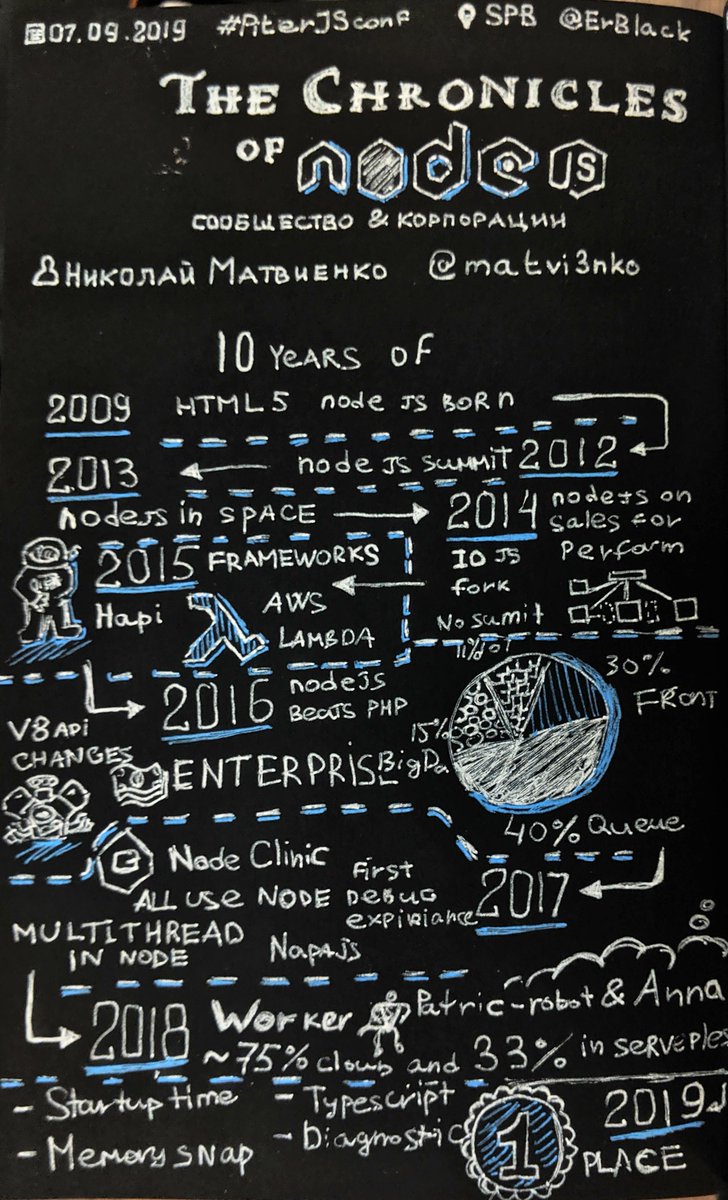 07.09.2019 #PiterJSconf SPB @ErBlack
THE CHRONICLES
OF node JS
СООБЩЕСТВО & КОРПОРАЦИИ
Николай Матвиенко @matvi3nko
10 YEARS OF
2009 HTML5 node JS BORN
2013 node JS SUMMIT 2012
nodeJS in SPACE 2014 nodeJS on
sales for
Perform
2015 FRAMEWORKS
IO JS
fork
No sumit
Hapi AWS
LAMBDA
2016 nodeJS
BEATS PHP
30%
FRONT
15%
BigDa
40% Queue
V8 API
CHANGES
ENTERPRISE
Node Clinic
ALL USE NODE
First
DEBUG
expiriance
2017
MULTITHREAD
IN NODE
NapaJS
2018 Worker Patric-robot & Anna
~75% cloub and 33% in serverles
- Startup time
- Memory snap
- Typescript
- Diagnostic
1
2019
PLACE